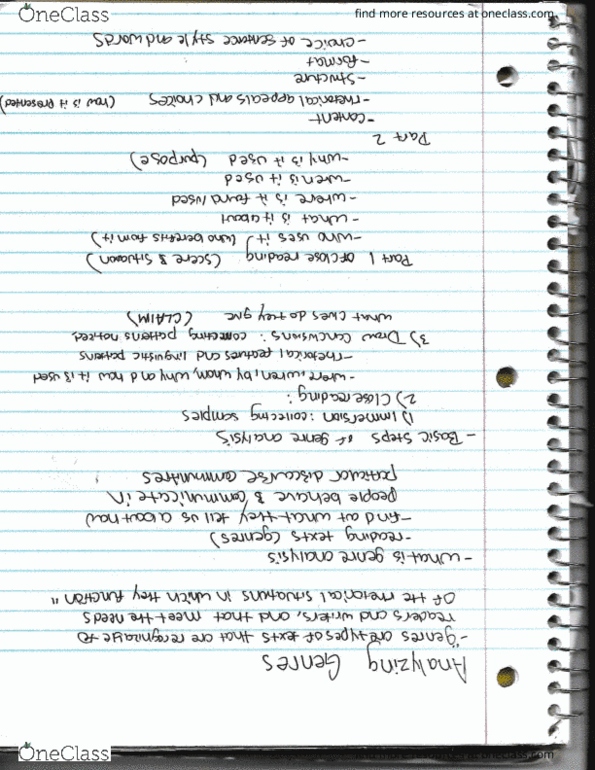 OneClass
find more resources at oneclass.com
Analyzing Genres
-"genres are types of texts that are recognizable to
readers and writers, and that meet the needs
of the rhetorical situations in which they function"
- what is genre analysis
- reading texts (genres)
- find out what they tell us about how
people behave & communicate in
particular discourse communities
- Basic steps of genre analysis
1) Immersion: collecting samples
2) Close reading:
- where, when, by whom, why and how it is used
- rhetorical features and linguistic patterns
3) Draw conclusions: connecting patterns noticed
what clues do they give (CLAIM)
Part 1 of close reading (scene & situation)
- who uses it (who benefits from it)
- what is it about
- where is it found/used
- when is it used
- why is it used (purpose)
Part 2
- content
- rhetorical appeals and choices (how is it presented)
- structure
- format
- choice of sentence style and words
OneClass
find more resources at oneclass.com